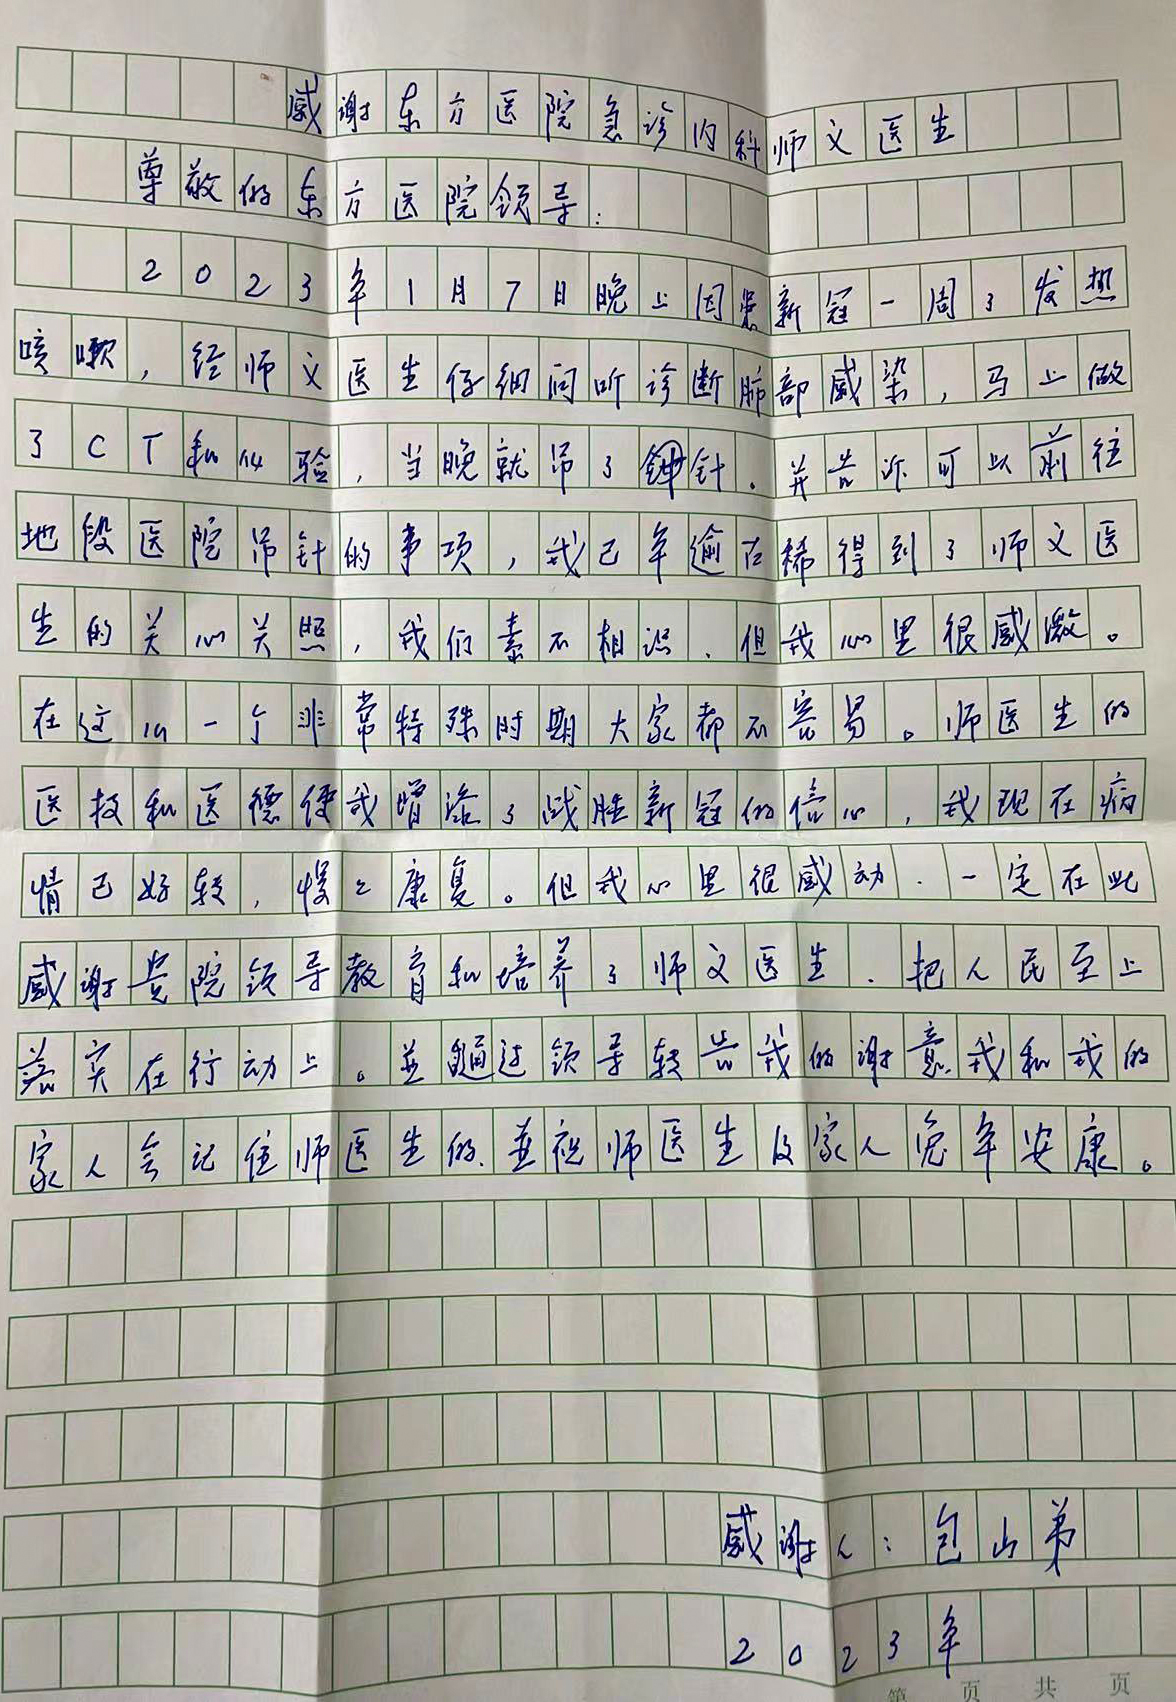 感谢东方医院急诊内科师文医生
尊敬的东方医院领导：
2023年1月7日晚上因患新冠一周了发热
咳嗽，经师文医生仔细问听诊断肺部感染，马上做
了CT和化验，当晚就吊了针。并告诉可以前往
地段医院吊针的事项，我已年逾古稀得到了师文医
生的关心关照，我们素不相识、但我心里很感激。
在这么一个非常特殊时期大家都不容易。师医生的
医技和医德使我增添了战胜新冠的信心，我现在病
情已好转，慢々康复。但我心里很感动、一定在此
感谢贵院领导教育和培养了师文医生、把人民至上
落实在行动上。並通过领导转告我的谢意我和我的
家人会记住师医生的、並祝师医生及家人兔年安康。
感谢人：包山弟
2023年
第 页 共 页